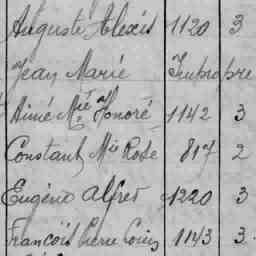 Auguste Alexis 1120 3
Jean Marie Impropre
Aimé Mie Honoré 1142 3
Constant Mie Rose 817 2
Eugène Alfred 1220 3
François Pierre Louis 1143 3